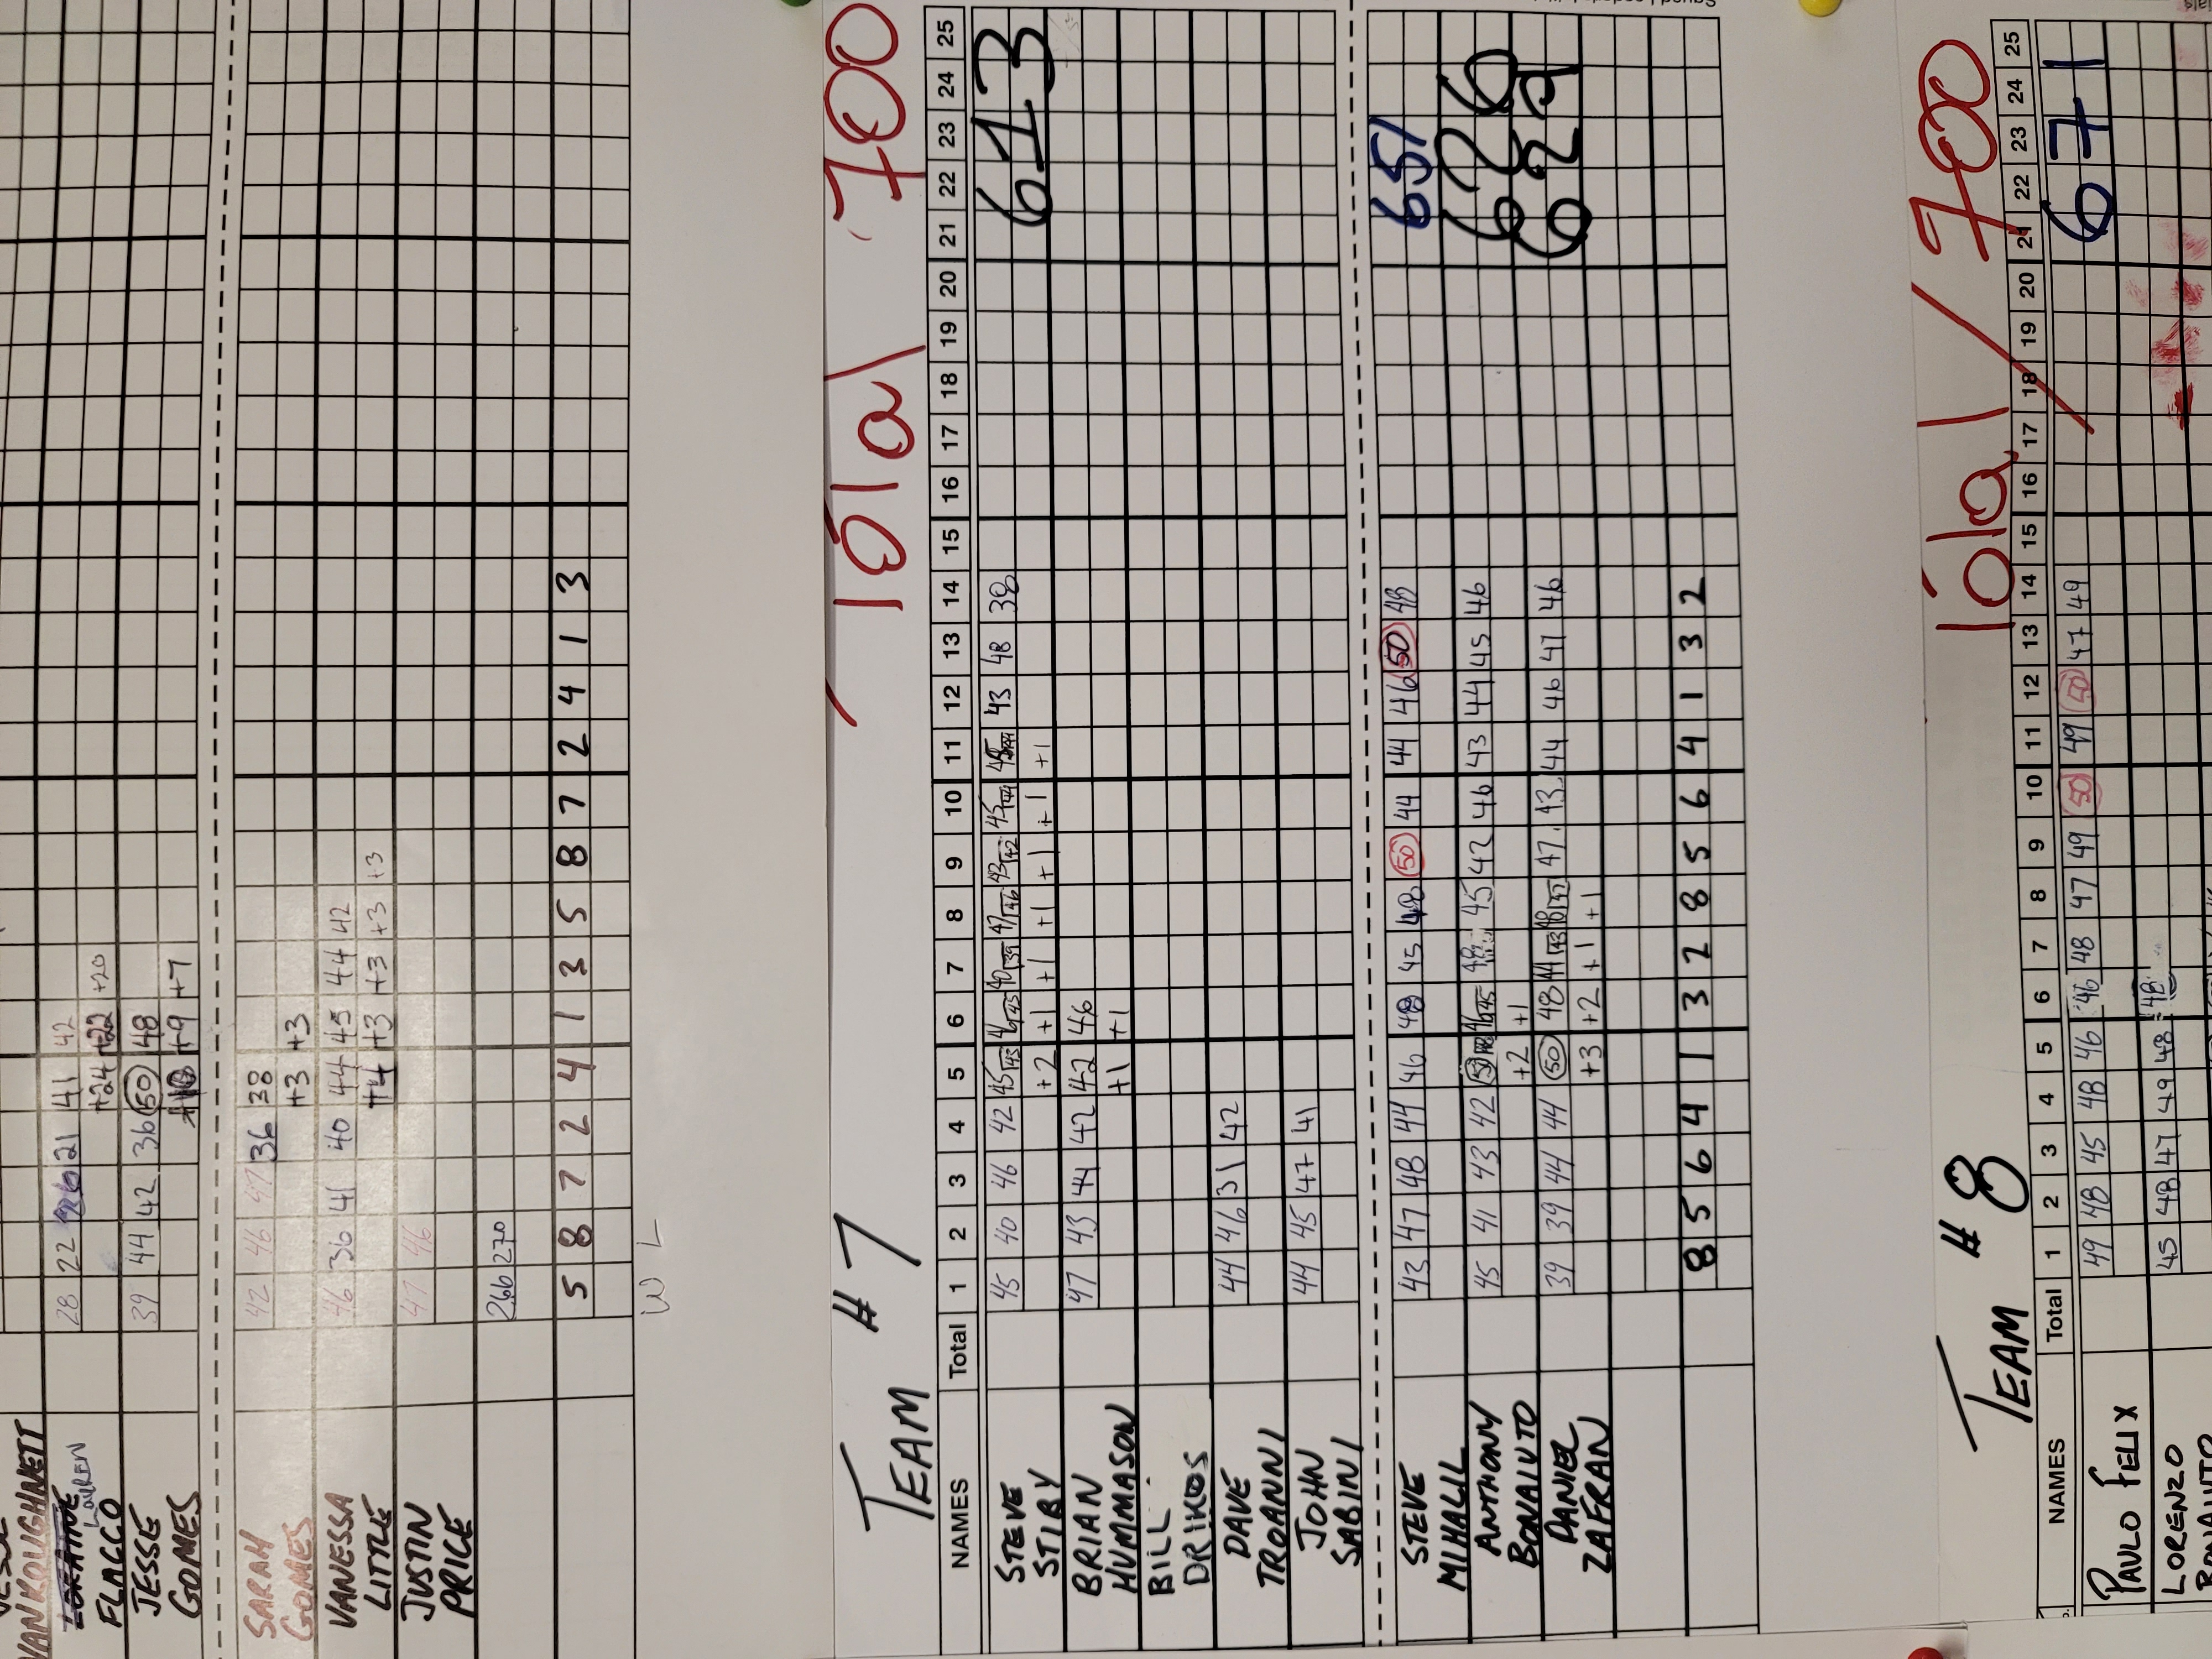 VANKOUGHNETT
LAUREN
FLACCO 28 22 21 41 42
+24 +22 +20
JESSE 39 44 42 36 50 48
GOMES +9 +7
SARAH 42 46 47
GOMES 36 38
+3 +3
VANESSA 46 36 41 40 44 45 44 42
LITTLE +4 +3 +3 +3 +3
JUSTIN 47 46
PRICE
266 270
5 8 7 2 4 1 3 5 8 7 2 4 1 3
W L
TEAM # 7 Total / 700
NAMES Total 1 2 3 4 5 6 7 8 9 10 11 12 13 14 15 16 17 18 19 20 21 22 23 24 25
STEVE 45 40 46 42 45 43 46 45 40 39 47 46 43 42 45 44 45 43 48 38 613
STIBY +2 +1 +1 +1 +1 +1 +1
BRIAN 47 43 44 42 42 46
HUMMASON +1 +1
BILL
DRIKOS
DAVE 44 46 31 42
TROANNI
JOHN 44 45 47 41
SABINI
STEVE 43 47 48 44 46 48 45 48 50 44 44 46 50 48 651
MIHALIL
ANTHONY 45 41 43 42 50 46 45 48 45 42 46 43 44 45 46 626
BONAIUTO +2 +1
DANIEL 39 39 44 44 50 48 44 43 48 47 47 43 44 46 47 46 629
ZAFRAN +3 +2 +1 +1
8 5 6 4 1 3 2 8 5 6 4 1 3 2
TEAM # 8 Total / 700
NAMES Total 1 2 3 4 5 6 7 8 9 10 11 12 13 14 15 16 17 18 19 20 21 22 23 24 25
PAULO FELIX 49 48 45 48 46 46 48 47 49 50 49 50 47 49 671
LORENZO 45 48 47 49 48 48
BONAIUTO